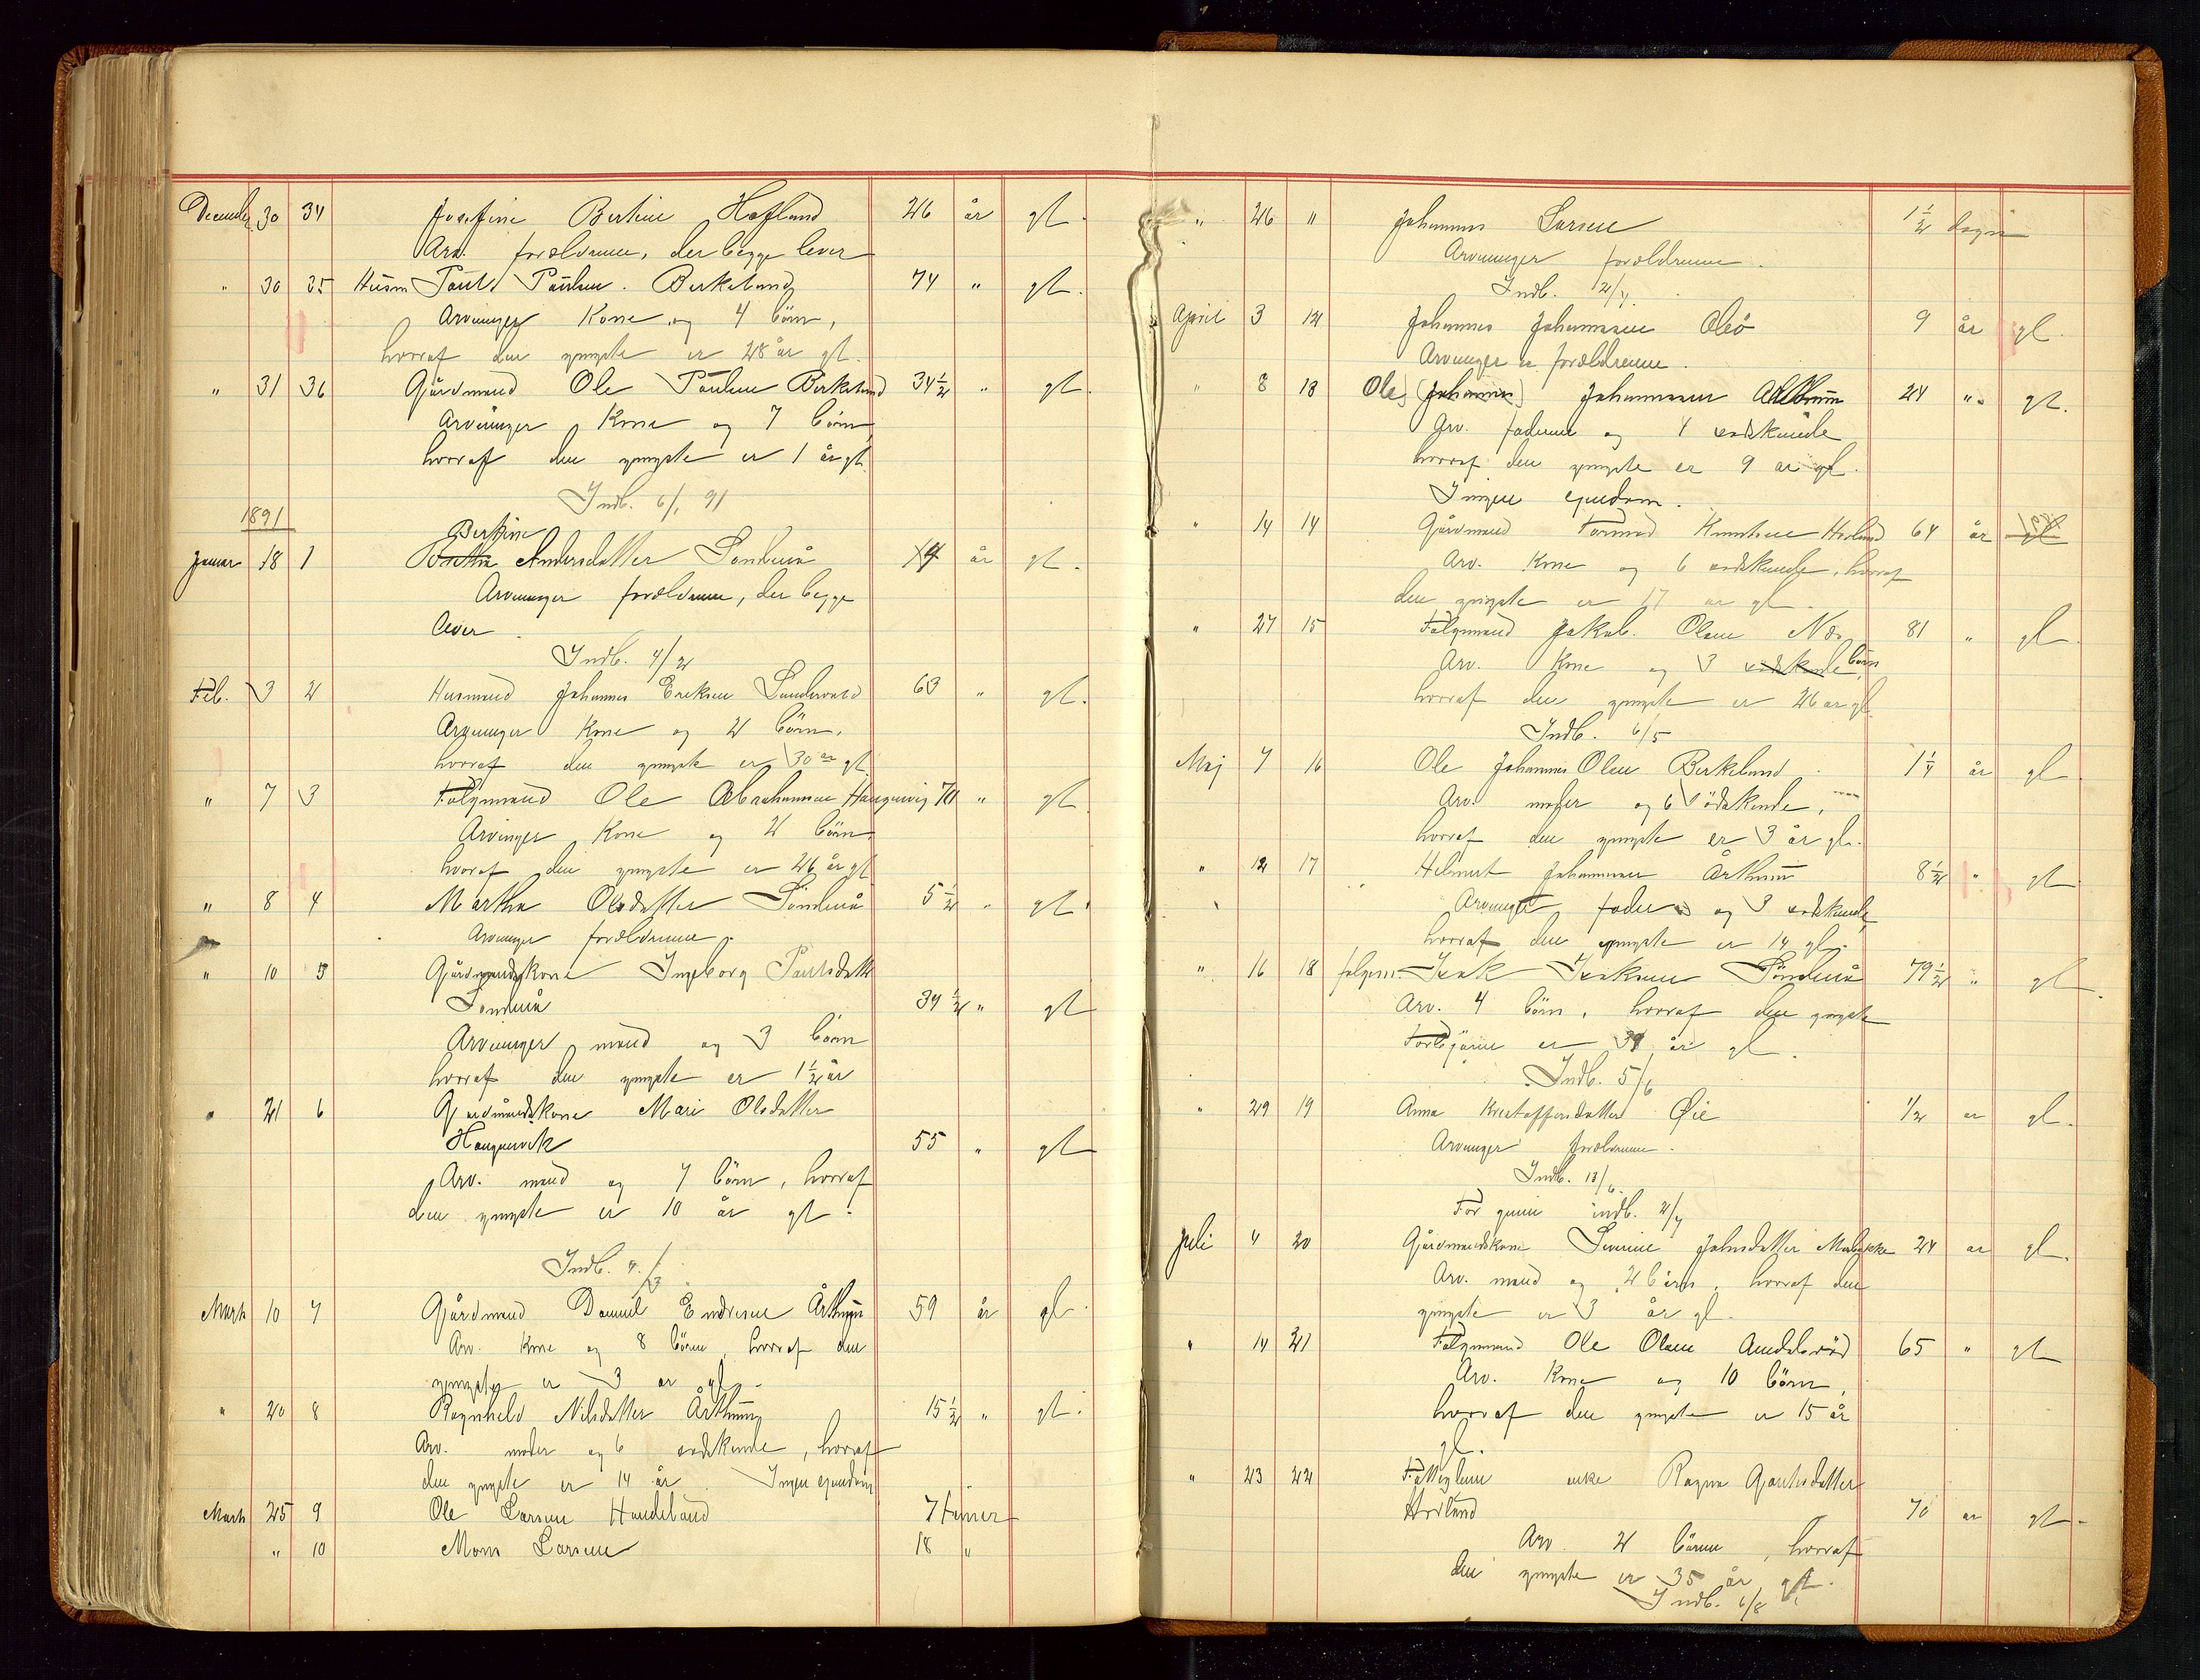 December 30 34 Josefine Bertine Hofland 26 år gl.
Arv. forældrene, der begge lever
" 30 35 Husm Poul Paulsen. Birkeland 74 " gl.
Arvinger Kone og 4 börn,
hvoraf den yngste er 28 år gl.
" 31 36 Gjårdmand Ole Paulsen Birkeland 34 1/2 " gl.
Arvinger Kone og 7 börn
hvoraf den yngste er 1 år gl.
Indb. 6/1 91
1891
Bertine
Januar 18 1 Andersdatter Söndenå år gl.
Arvinger forældrene, der begge
lever.
Indb. 4/2
Feb. 3 2 Husmand Johannes Eriksen Sandvold 63 " gl.
Arvinger Kone og 2 börn,
hvoraf den yngste er 30 år gl.
" 7 3 Folgmand Ole Abrahamsen Haugevig " gl.
Arvinger Kone og 2 börn
hvoraf den yngste er 26 år gl
" 8 4 Martha Olsdatter Söndenå 5 1/2 " gl.
Arvinger forældrene.
" 10 5 Gjårdmandskone Ingeborg Paulsdatter
Söndenå 34 1/2 " gl
Arvinger mand og 3 börn
hvoraf den yngste er 1 1/2 år
" 21 6 Gjårdmandskone Mari Olsdatter
Haugevik 55 " gl
Arv. mand og 7 börn, hvoraf
den yngste er 10 år gl.
Indb. 4/3
Marts 10 7 Gjårdmand Daniel Endresen Årthun 59 år gl.
Arv. Kone og 8 börn, hvoraf den
yngste er 3 år gl.
" 20 8 Ragnhild Nilsdatter Årthun 15 1/2 " gl.
Arv. moder og 6 sødskende, hvoraf
den yngste er 14 år. Ingen ejendom
Marts 25 9 Ole Larsen Handeland 7 timer
" 10 Mons Larsen 18 "
" 26 " Johannes Larsen 1 1/2 dögn
Arvinger forældrene.
Indb. 2/4.
April 3 12 Johannes Johannesen 9 år gl.
Arvinger er forældrene.
" 8 13 Ole (Johannes) Johannesen Årthun 24 " gl.
Arv. faderen og 4 sødskende
hvoraf den yngste er 9 år gl.
Ingen ejendom.
" 14 14 Gjårdmand Tormod Knutsen Hovland 64 år gl
Arv. Kone og 6 sødskende, hvoraf
den yngste er 17 år gl.
" 27 15 Folgmand Jakob Olsen Næs 81 " gl.
Arv. Kone og 3 sødskende börn
hvoraf den yngste er 26 år gl.
Indb. 6/5
Maj 7 16 Ole Johannes Olsen Birkeland 1 1/4 år gl
Arv. moder og 6 södskende,
hvoraf den yngste er 3 år gl.
" 12 17 Helmert Johannesen Årthun 8 1/2 " gl
Arvinger fader og 3 sødskende
hvoraf den yngste er 14 gl.
" 16 18 folgm. Isak Isaksen Söndenå 79 1/2 " gl.
Arv. 4 börn, hvoraf den yngste
Torbjörn er 39 år gl.
Indb. 5/6
" 29 19 Anna Kristoffersdatter Øie 1/2 år gl.
Arvinger forældrene.
Indb. 13/6.
For juni indb. 2/7
Juli 4 20 Gjårdmandskone Severine Johnsdatter 24 år gl.
Arv. mand og 2 börn, hvoraf den
yngste er 3 år gl.
" 14 21 Folgmand Ole Olsen Amdalsröd 65 " gl
Arv. Kone og 10 börn,
hvoraf den yngste er 15 år
gl.
" 23 22 Fattiglem enke Ragna Gjertsdatter
Hovland 70 år gl.
Arv. 2 börn, hvoraf
den yngste er 35 år gl.
Indb. 6/8